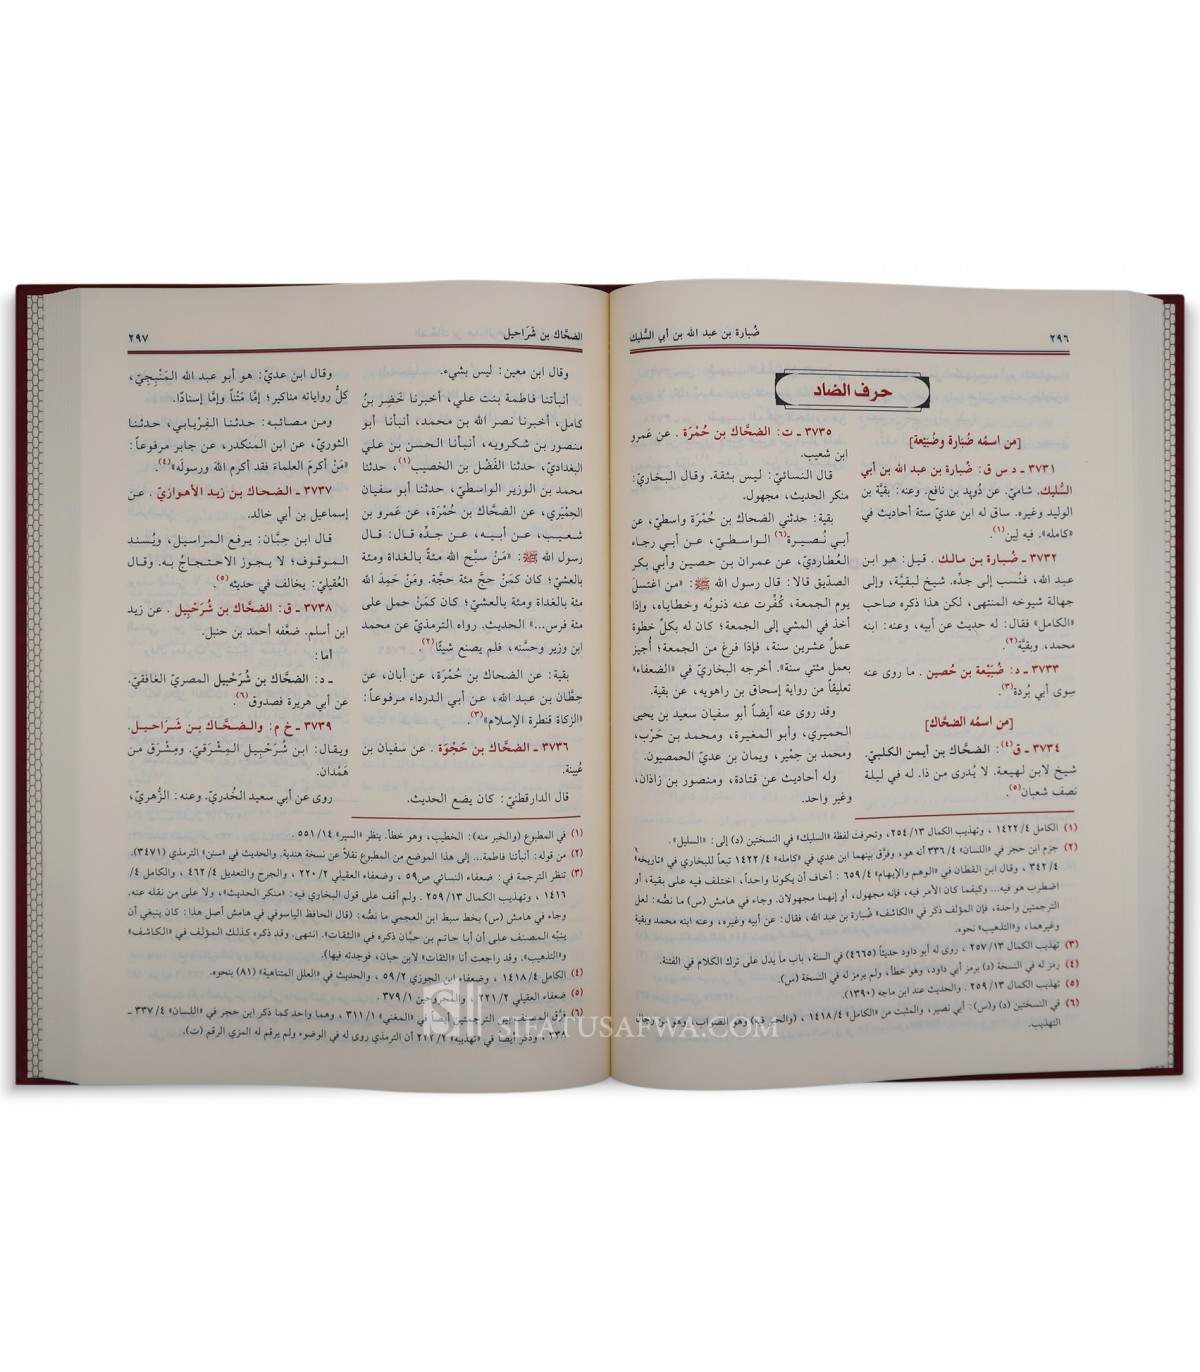 ٢٩٦
ضُبارة بن عبد الله بن أبي السُّليك
حرف الضاد
[من اسمُه ضُبَارة وضُبَيْعة]
٣٧٣١ ـ د س ق: ضُبارة بن عبد الله بن أبي
السُّليك. شاميّ. عن دُويد بن نافع. وعنه: بقيَّة بن
الوليد وغيره. ساق له ابن عديّ ستة أحاديث في
«كامله». فيه لِين(١).
٣٧٣٢ ـ ضُبارة بن مالك . قيل: هو ابن
عبد الله، فنُسب إلى جدِّه. شيخ لبقيَّة، وإلى
جهالة شيوخه المنتهى، لكن هذا ذكره صاحب
«الكامل» فقال: له حديث عن أبيه، وعنه: ابنه
محمد، وبقيَّة(٢).
٣٧٣٣ ـ د: ضُبَيْعة بن حُصين . ما روى عنه
سِوى أبي بُردة(٣).
[من اسمُه الضحاك]
٣٧٣٤ ـ ق(٤): الضحّاك بن أيمن الكلبيّ.
شيخ لابن لهيعة. لا يُدرى من ذا. له في ليلة
نصف شعبان(٥).
٣٧٣٥ ـ ت: الضحَّاك بن حُمْرَة . عن عَمرو
ابن شعيب.
قال النسائيّ: ليس بثقة. وقال البخاريّ:
منكر الحديث، مجهول.
بقية: حدثني الضحاك بن حُمْرَة واسطيّ، عن
أبي نُصيرة(٦) الواسطيّ، عن أبي رجاء
العُطارديّ، عن عمران بن حصين وأبي بكر
الصدِّيق قالا: قال رسول الله ﷺ: «من اغتسلَ
يوم الجمعة، كُفِّرت عنه ذنوبُه وخطاياه، وإذا
أخذ في المشي إلى الجمعة؛ كان له بكلِّ خطوة
عملُ عشرين سنة، فإذا فرغَ من الجمعة؛ أُجيز
بعمل مئتي سنة». أخرجه البخاريّ في «الضعفاء»
تعليقاً من رواية إسحاق بن راهويه، عن بقية.
وقد روى عنه أيضاً أبو سفيان سعيد بن يحيى
الحميري، وأبو المغيرة، ومحمد بن حَرْب،
ومحمد بن حِمْير، ويمان بن عديّ الحمصيون.
وله أحاديث عن قتادة، ومنصور بن زاذان،
وغير واحد.
(١) الكامل ١٤٢٢/٤ ، وتهذيب الكمال ٢٥٤/١٣، وتحرفت لفظة «السليك» في النسختين (د) إلى: «السليل» .
(٢) جزم ابن حجر في «اللسان» ٣٣٦/٤ أنه هو، وفرَّق بينهما ابن عدي في «كامله» ١٤٢٢/٤ تبعاً للبخاري في «تاريخه»
٣٤٢/٤ ، وقال ابن القطان في «الوهم والإيهام» ٦٥٩/٤ : أخاف أن يكونا واحداً، اختلف فيه على بقية، أو
اضطرب هو فيه... وكيفما كان الأمر فيه، فإنه مجهول، أو إنهما مجهولان. وجاء في هامش (س) ما نصُّه: لعل
الترجمتين واحدة، فإن المؤلف ذكر في «الكاشف» ضُبارة بن عبد الله، فقال: عن أبيه وغيره، وعنه ابنه محمد وبقية
وغيرهما، و«التذهيب» نحوه.
(٣) تهذيب الكمال ٢٥٧/١٣ ، روى له أبو داود حديثاً (٤٦٦٥) في السنة، باب ما يدل على ترك الكلام في الفتنة.
(٤) رمز له في النسخة (د) برمز أبي داود، وهو خطأ، ولم يرمز له في النسخة (س).
(٥) تهذيب الكمال ٢٥٩/١٣. والحديث عند ابن ماجه (١٣٩٠).
(٦) في النسختين (د) و(س): أبي نصير، والمثبت من «الكامل» ١٤١٨/٤ ، (والخبر فيه) وهو الصواب، وهو من رجال
التهذيب.
الضحَّاك بن شَرَاحيل
٢٩٧
وقال ابن معين: ليس بشيء.
أنبأتنا فاطمة بنت علي، أخبرنا خَضِر بنُ
كامل، أخبرنا نصر الله بن محمد، أنبأنا أبو
منصور بن شكرويه، أنبأنا الحسن بن علي
البغداديّ، حدثنا الفَضْل بن الخصيب(١)، حدثنا
محمد بن الوزير الواسطيّ، حدثنا أبو سفيان
الحِمْيَري، عن الضحَّاك بن حُمْرَة، عن عَمرو بن
شعيب، عن أبيه، عن جدِّه قال: قال
رسول الله ﷺ: «مَنْ سبَّح الله مئةً بالغداة ومئة
بالعشيّ؛ كان كمَنْ حجَّ مئة حجَّة. ومَنْ حَمِدَ الله
مئة بالغداة ومئة بالعشيّ؛ كان كمَنْ حمل على
مئة فرس...» الحديث. رواه الترمذيّ عن محمد
ابن وزير وحسَّنه، فلم يصنع شيئًا(٢).
بقية: عن الضحاك بن حُمْرَة، عن أبان، عن
حِطَّان بن عبد الله، عن أبي الدرداء مرفوعاً:
«الزكاة قنطرة الإسلام»(٣).
٣٧٣٦ ـ الضحَّاك بن حَجْوَة . عن سفيان بن
عُيينة.
قال الدارقطنيّ: كان يضع الحديث.
وقال ابن عديّ: هو أبو عبد الله المَنْبِجِيّ،
كلُّ رواياته مناكير؛ إمَّا مَتْناً وإمَّا إسنادًا.
ومن مصائبه: حدثنا الفِرْيابي، حدثنا
الثوريّ، عن ابن المنكدر، عن جابر مرفوعاً:
«مَنْ أكرمَ العلماءَ فقد أكرم اللهَ ورسولَه»(٤).
٣٧٣٧ ـ الضحاك بن زيد الأهوازيّ . عن
إسماعيل بن أبي خالد.
قال ابن حِبَّان: يرفع المراسيل، ويُسند
الموقوف؛ لا يجوز الاحتجاجُ به. وقال
العُقيليّ: يخالف في حديثه(٥).
٣٧٣٨ ـ ق: الضحّاك بن شُرَحْبِيل . عن زيد
ابن أسلم. ضعَّفه أحمد بن حنبل.
أما:
ـ د: الضحّاك بن شُرَحْبيل المصريّ الغافقيّ.
عن أبي هريرة فصدوق(٦).
٣٧٣٩ ـ خ م: والضحَّاك بن شَرَاحيل.
ويقال: ابن شُرَحْبِيل المِشْرَقيّ. ومِشْرَق من
هَمْدان.
روى عن أبي سعيد الخُدريّ. وعنه: الزُّهريّ،
(١) في المطبوع (والخبر منه): الخطيب، وهو خطأ. ينظر «السير» ٥٥١/١٤ .
(٢) من قوله: أنبأتنا فاطمة... إلى هذا الموضع من المطبوع نقلاً عن نسخة هندية. والحديث في «سنن» الترمذي (٣٤٧١).
(٣) تنظر الترجمة في: ضعفاء النسائي ص٥٩ ، وضعفاء العقيلي ٢٢٠/٢ ، والجرح والتعديل ٤٦٢/٤ ، والكامل ٤/
١٤١٦ ، وتهذيب الكمال ٢٥٩/١٣ . ولم أقف على قول البخاري فيه: «منكر الحديث»، ولا على من نقله عنه.
وجاء في هامش (س) بخط سبط ابن العجمي ما نصُّه: (قال الحافظ الياسوفي في هامش أصل هذا: كان ينبغي أن
ينبِّه المصنف على أن أبا حاتم بن حبَّان ذكره في «الثقات». انتهى. وقد ذكره كذلك المؤلف في «الكاشف»
و«التذهيب». وقد راجعت أنا «الثقات» لابن حبان، فوجدته فيها).
(٤) الكامل ١٤١٨/٤ ، وضعفاء ابن الجوزي ٥٩/٢ ، والحديث في «العلل المتناهية» (٨١) بنحوه.
(٥) ضعفاء العقيلي ٢٢١/٢ ، والمجروحين ٣٧٩/١ .
(٦) فرَّق المصنف بين الترجمتين أيضاً في «المغني» ٣١١/١ ، وهما واحد كما ذكر ابن حجر في «اللسان» ٣٣٧/٤ ـ
٢٣٨ ، وذكر أيضاً في «تهذيبه» ٢٢٢/٢ أن الترمذي روى له في الوضوء ولم يرقم له المزي الرقم (ت).
SIFATUSAFWA.COM